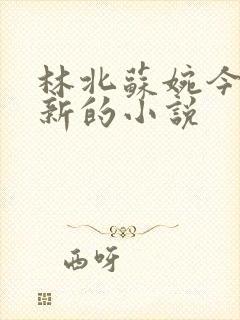 林北蘇婉今
新的小說
西呀